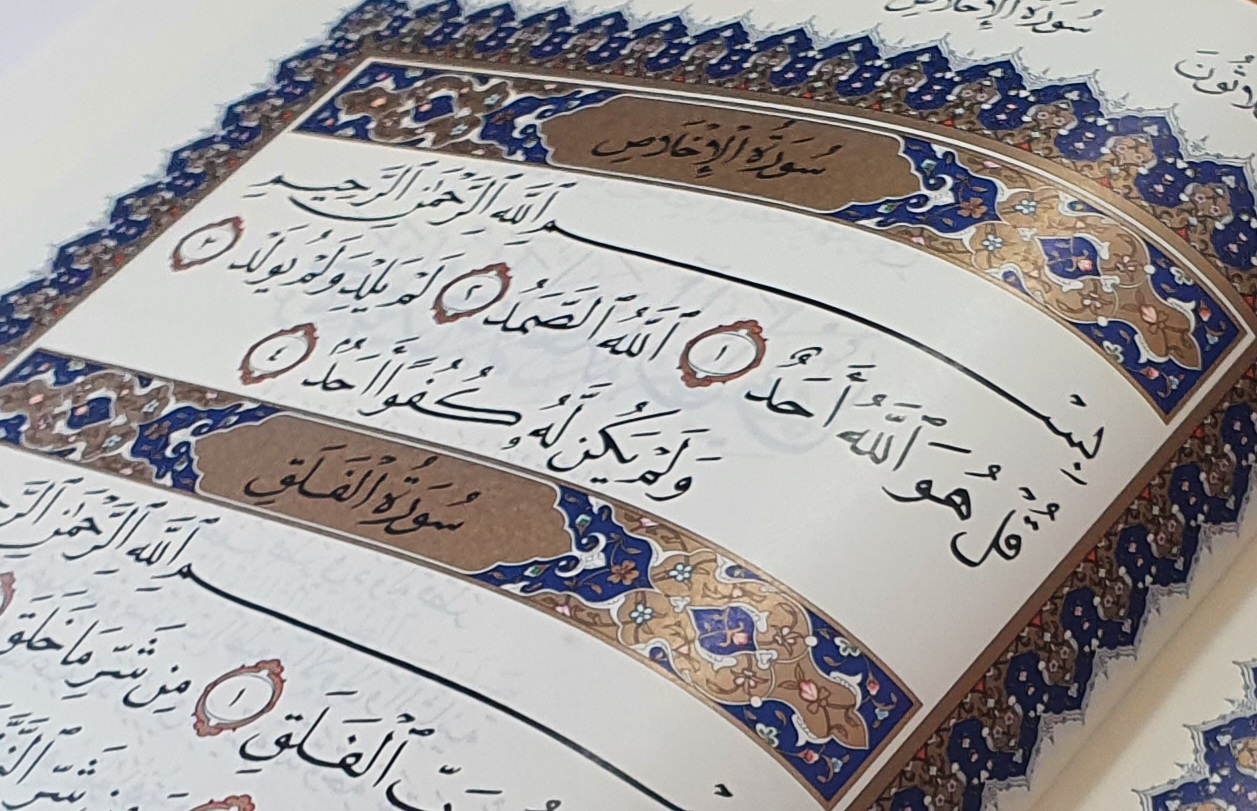 سُورَةُ الْإِخْلَاصِ
لَاثُونَ
سُورَةُ الْإِخْلَاصِ
بِسْمِ ٱللَّهِ ٱلرَّحْمَٰنِ ٱلرَّحِيمِ
قُلْ هُوَ ٱللَّهُ أَحَدٌ ١ ٱللَّهُ ٱلصَّمَدُ ٢ لَمْ يَلِدْ وَلَمْ يُولَدْ ٣
وَلَمْ يَكُن لَّهُۥ كُفُوًا أَحَدٌ ٤
سُورَةُ الْفَلَقِ
بِسْمِ ٱللَّهِ ٱلرَّحْمَٰنِ ٱلرَّ
ٱلْفَلَقِ ١ مِن شَرِّ مَا خَلَقَ